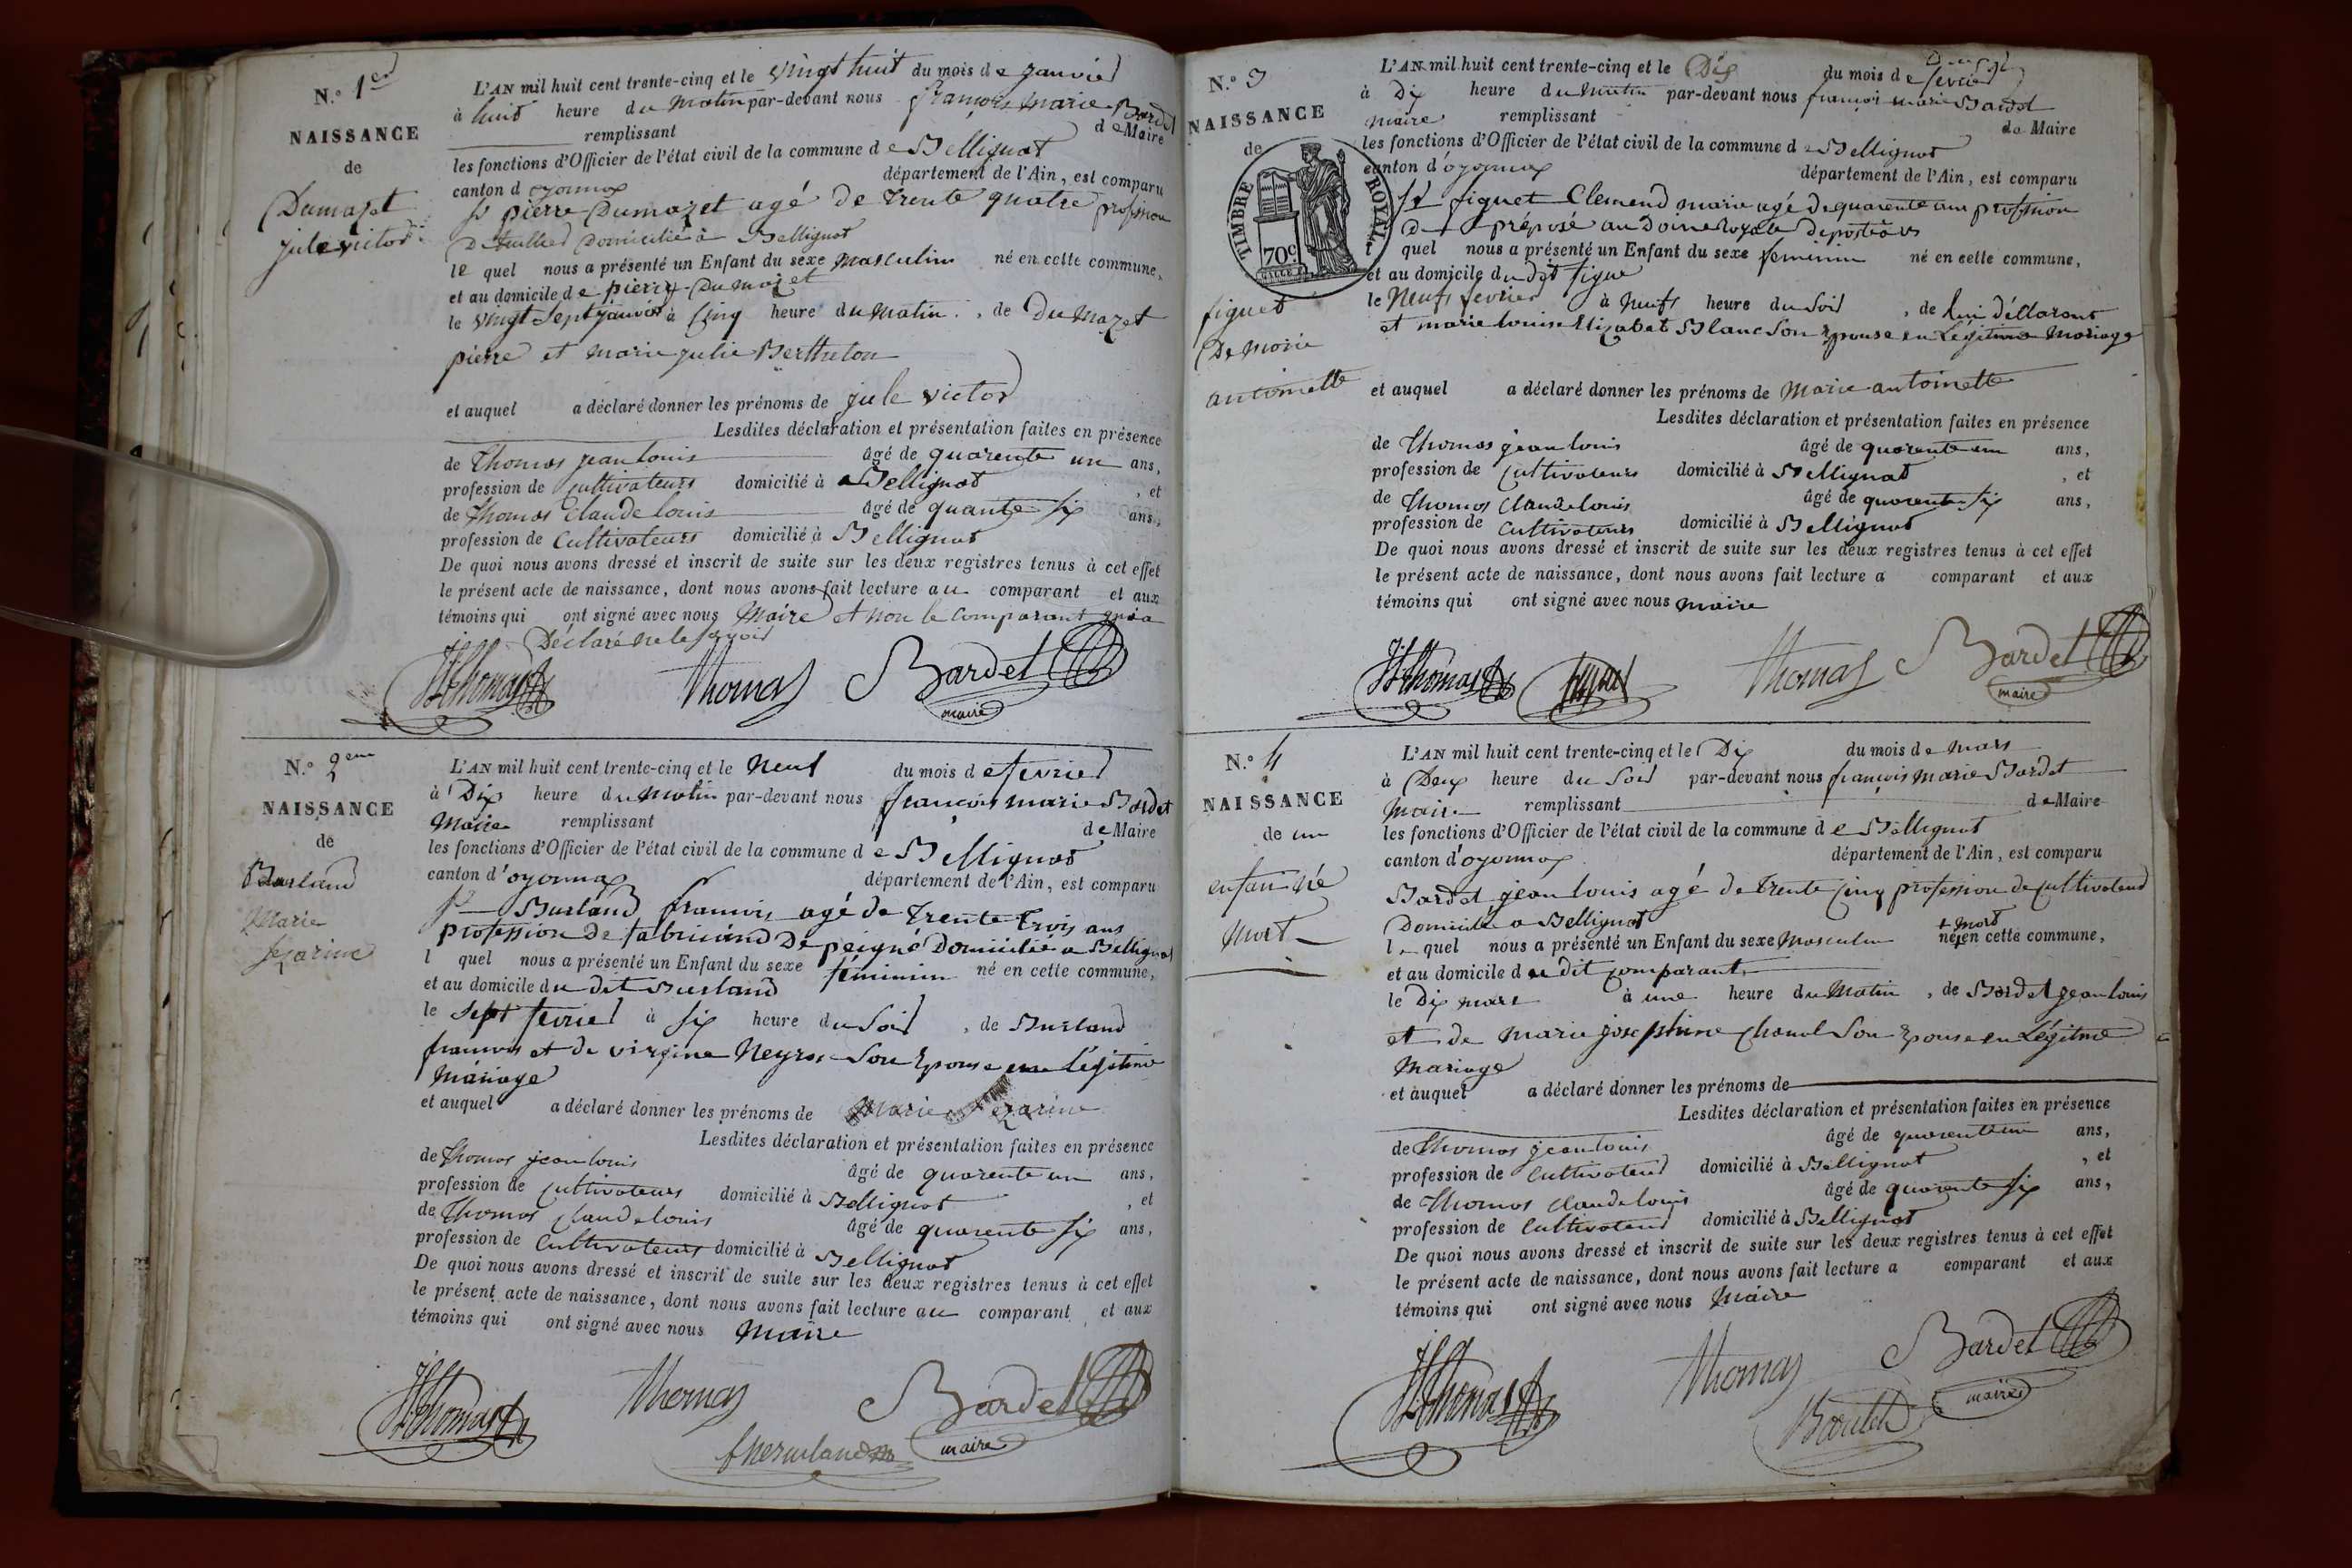 N.o 1er
NAISSANCE
de
Dumazet
jule victor
L'AN mil huit cent trente-cinq et le vingt huit du mois de janvier
à huit heure du matin par-devant nous françois marie Bardet
remplissant de Maire
les fonctions d'Officier de l'état civil de la commune de Bellignat
canton d oyonnax département de l'Ain, est comparu
Sr pierre Dumazet agé de trente quatre profession
domicilié à Bellignat
le quel nous a présenté un Enfant du sexe masculin né en cette commune,
et au domicile de pierre Dumazet
le vingt Sept janvier à cinq heure du matin, de Dumazet
pierre et marie julie Berthelon
et auquel a déclaré donner les prénoms de jule victor
Lesdites déclaration et présentation faites en présence
de Thomas jean louis âgé de quarente un ans,
profession de cultivateurs domicilié à Bellignat, et
de Thomas Claude louis âgé de quante six ans,
profession de Cultivateurs domicilié à Bellignat
De quoi nous avons dressé et inscrit de suite sur les deux registres tenus à cet effet
le présent acte de naissance, dont nous avons fait lecture au comparant et aux
témoins qui ont signé avec nous Maire et non le comparant qui a
Déclaré ne le savoir
JLThomas Thomas Bardet
maire
N.o 2eme
NAISSANCE
de
Burland
Marie
Sezarine
L'AN mil huit cent trente-cinq et le Neuf du mois de fevrier
à Dix heure du Matin par-devant nous françois marie Bardet
Maire remplissant de Maire
les fonctions d'Officier de l'état civil de la commune de Bellignat
canton d'oyonnax département de l'Ain, est comparu
Sr Burland francois agé de trente trois ans
profession de fabricand De peigne Domicilié a Bellignat
l quel nous a présenté un Enfant du sexe féminim né en cette commune,
et au domicile du dit Burland
le Sept fevrier à six heure du Soir, de Burland
francois et de virgine Neyros Son Epouse en Légitime
Mariage
et auquel a déclaré donner les prénoms de Marie Sezarine
Lesdites déclaration et présentation faites en présence
de Thomas jean louis âgé de quarente un ans,
profession de cultivateurs domicilié à Bellignat, et
de Thomas Claude louis âgé de quarente six ans,
profession de Cultivateurs domicilié à Bellignat
De quoi nous avons dressé et inscrit de suite sur les deux registres tenus à cet effet
le présent acte de naissance, dont nous avons fait lecture au comparant et aux
témoins qui ont signé avec nous Maire
JLThomas Thomas Bardet
maire
N.o 3
NAISSANCE
de
TIMBRE ROYAL
70c
figuet
De Marie
antoinette
L'AN mil huit cent trente-cinq et le Dix du mois de fevrier
à Dix heure du matin par-devant nous françois marie Bardet
maire remplissant de Maire
les fonctions d'Officier de l'état civil de la commune de Bellignat
canton d'oyonnax département de l'Ain, est comparu
Sr figuet Clemend marie agé de quarente un profession
d préposé au Doine Royale
quel nous a présenté un Enfant du sexe feminin né en cette commune,
et au domicile du dit figue
le Neufs fevrier à Neufs heure du Soir, de lui déclarant
et marie louise Elizabet Blanc Son Epouse en Légitime Mariage
et auquel a déclaré donner les prénoms de Marie antoinette
Lesdites déclaration et présentation faites en présence
de Thomas jean louis âgé de quarente un ans,
profession de Cultivateurs domicilié à Bellignat, et
de Thomas Claude louis âgé de quarente six ans,
profession de Cultivateurs domicilié à Bellignat
De quoi nous avons dressé et inscrit de suite sur les deux registres tenus à cet effet
le présent acte de naissance, dont nous avons fait lecture a comparant et aux
témoins qui ont signé avec nous maire
JLThomas Thomas Bardet
maire
N.o 4
NAISSANCE
de un
enfan né
mort
L'AN mil huit cent trente-cinq et le Dix du mois de mars
à Deux heure du Soir par-devant nous françois marie Bardet
Maire remplissant de Maire
les fonctions d'Officier de l'état civil de la commune de Bellignat
canton d'oyonnax département de l'Ain, est comparu
Bardet jean louis agé de trente cinq profession de cultivateur
Domicilié a Bellignat
l e quel nous a présenté un Enfant du sexe Masculin né + mort en cette commune,
et au domicile du dit comparant
le Dix mars à une heure du Matin, de Bardet jean louis
et de marie josephine Son Epouse en Légitime
Mariage
et auquel a déclaré donner les prénoms de
Lesdites déclaration et présentation faites en présence
de Thomas jean louis âgé de quarente un ans,
profession de Cultivateur domicilié à Bellignat, et
de Thomas Claude louis âgé de quarente six ans,
profession de Cultivateur domicilié à Bellignat
De quoi nous avons dressé et inscrit de suite sur les deux registres tenus à cet effet
le présent acte de naissance, dont nous avons fait lecture a comparant et aux
témoins qui ont signé avec nous Maire
JLThomas Thomas Bardet
maire